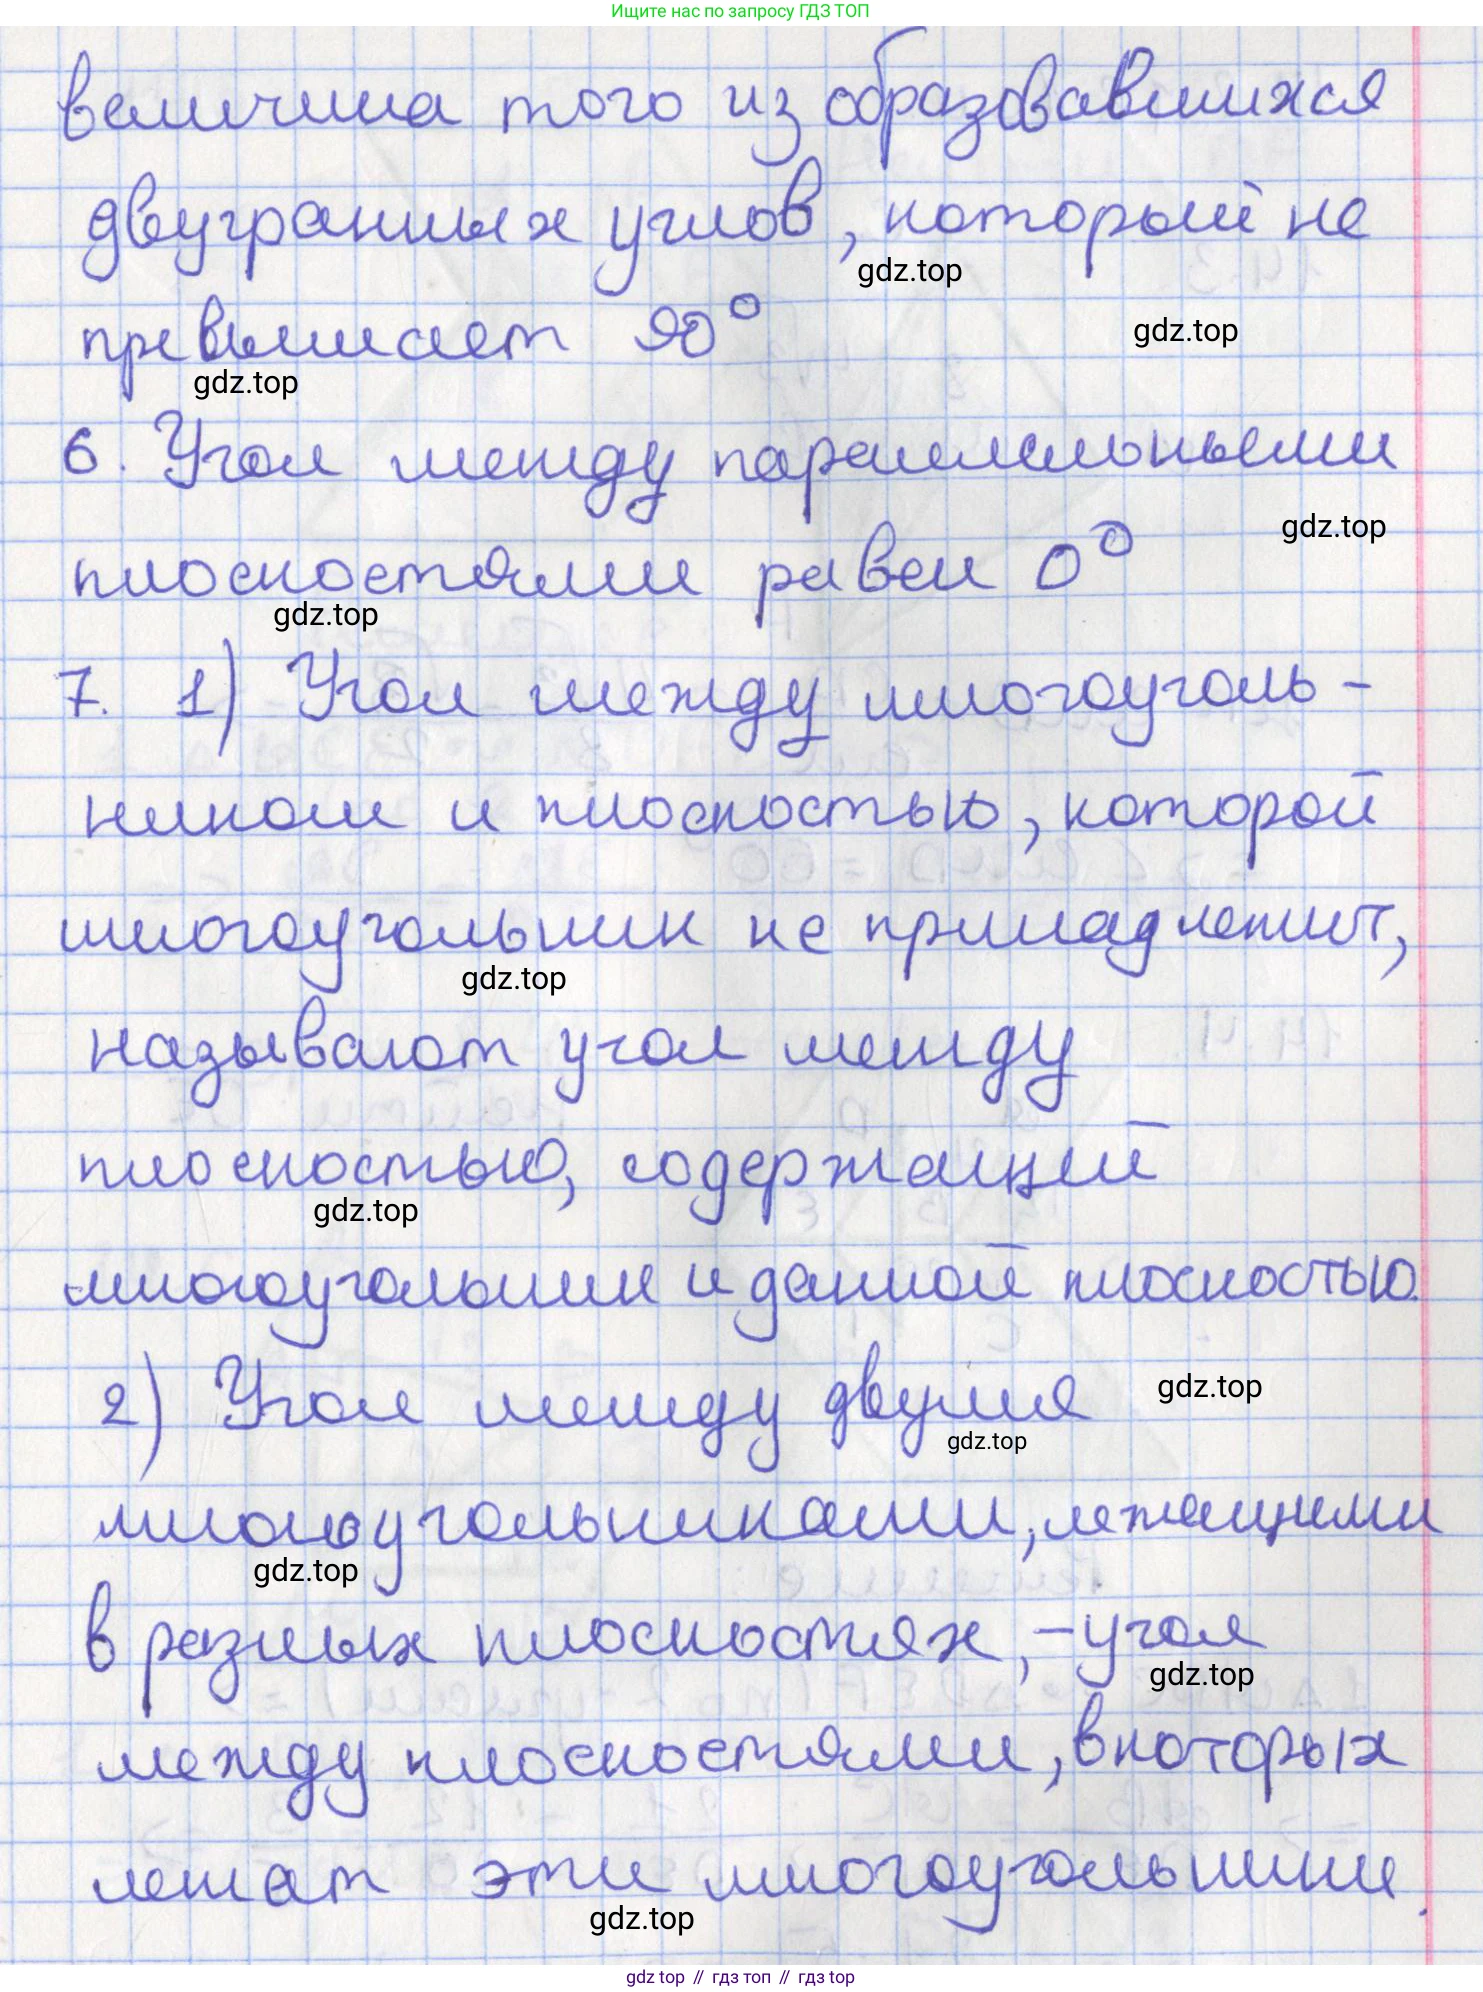 Ищите нас по запросу ГДЗ ТОП
величина того из образовавшихся
двугранных углов, который не
gdz.top
превышает 90°
gdz.top
gdz.top
6. Угол между параллельными
gdz.top
плоскостями равен 0°
gdz.top
7. 1) Угол между многоуголь-
ником и плоскостью, которой
многоугольник не принадлежит,
gdz.top
называют угол между
плоскостью, содержащей
gdz.top
многоугольник и данной плоскостью.
2) Угол между двумя
gdz.top
gdz.top
многоугольниками, лежащими
gdz.top
в разных плоскостях, - угол
gdz.top
между плоскостями, в которых
лежат эти многоугольники.
gdz.top
gdz top // гдз топ // gdz top